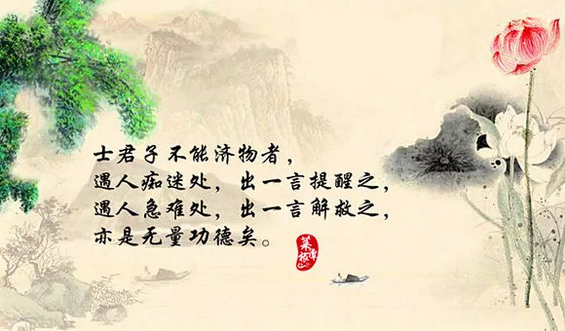 士君子不能济物者，
遇人痴迷处，出一言提醒之，
遇人急难处，出一言解救之，
亦是无量功德矣。
菜根谭